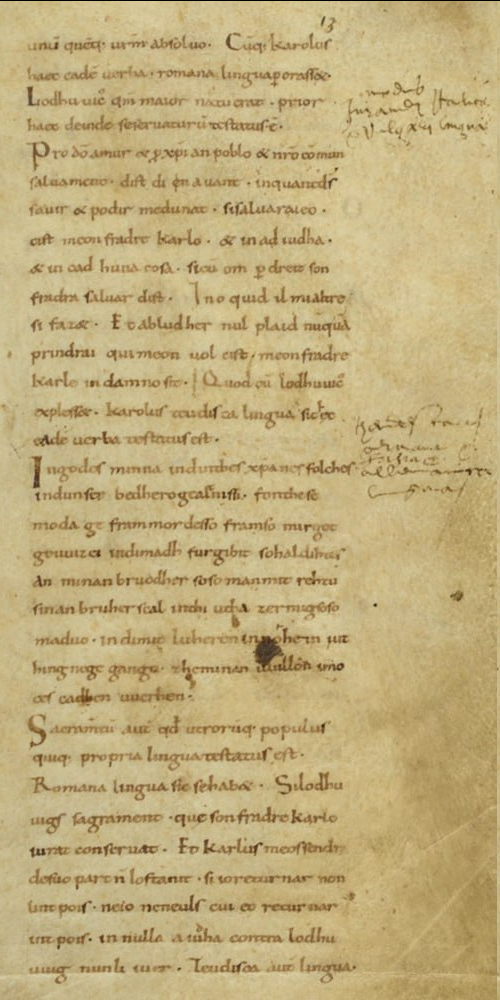 13
unū quēq; urm̄ absoluo. Cūq; karolus
haec eadē uerba romana lingua ꝑorasset.
Lodhuuic̄ qm̄ maior natu erat. prior
haec deinde se seruaturū testatus ē.
Pro dō amur & ꝓ xp̄ian poblo & nr̄o cōmun
saluament. dist di en auant. inquant dſ̄
sauir & podir me dunat. si saluarai eo.
cist meon fradre karlo. & in adiudha.
& in cad huna cosa. sicū om p dreit son
fradra saluar dist. In o quid il mialtre
si faz&. Et ab ludher nul plaid nūquā
prindrai qui meon uol cist. meon fradre
karle in damno sit. Quod cū lodhuuic̄
explesset. karolus teudisca lingua sic hec
eadē uerba testatus est.
Ingodes minna indinthes xp̄anes folches
indunser bedhero gealtnissi. fonthese
moda ge frammordesso framso mirgot
geuuizci indimadh furgibit sohaldihtes
an minan bruodher soso man mit rehtu
sinan bruher scal inthi utha zermigsoso
maduo. indimit luheren innohein iut
hing nege gango. zheminan uuillon imo
ces cadhen uuerhen.
Sacramtū aut̄ qd̄ utrorūq; populus
quiq; propria lingua testatus est.
Romana lingua sic se hab&. Silodhu
uigs sagrament. que son fradre karlo
iurat conseruat. Et karlus meos sendr̄
desuo part n̄ lostanit. si ioreturnar non
lint pois. neio neneuls cui eo returnar
int pois. in nulla aiudha contra lodhu
uuig nunli iuer. Teudisca aut̄ lingua.